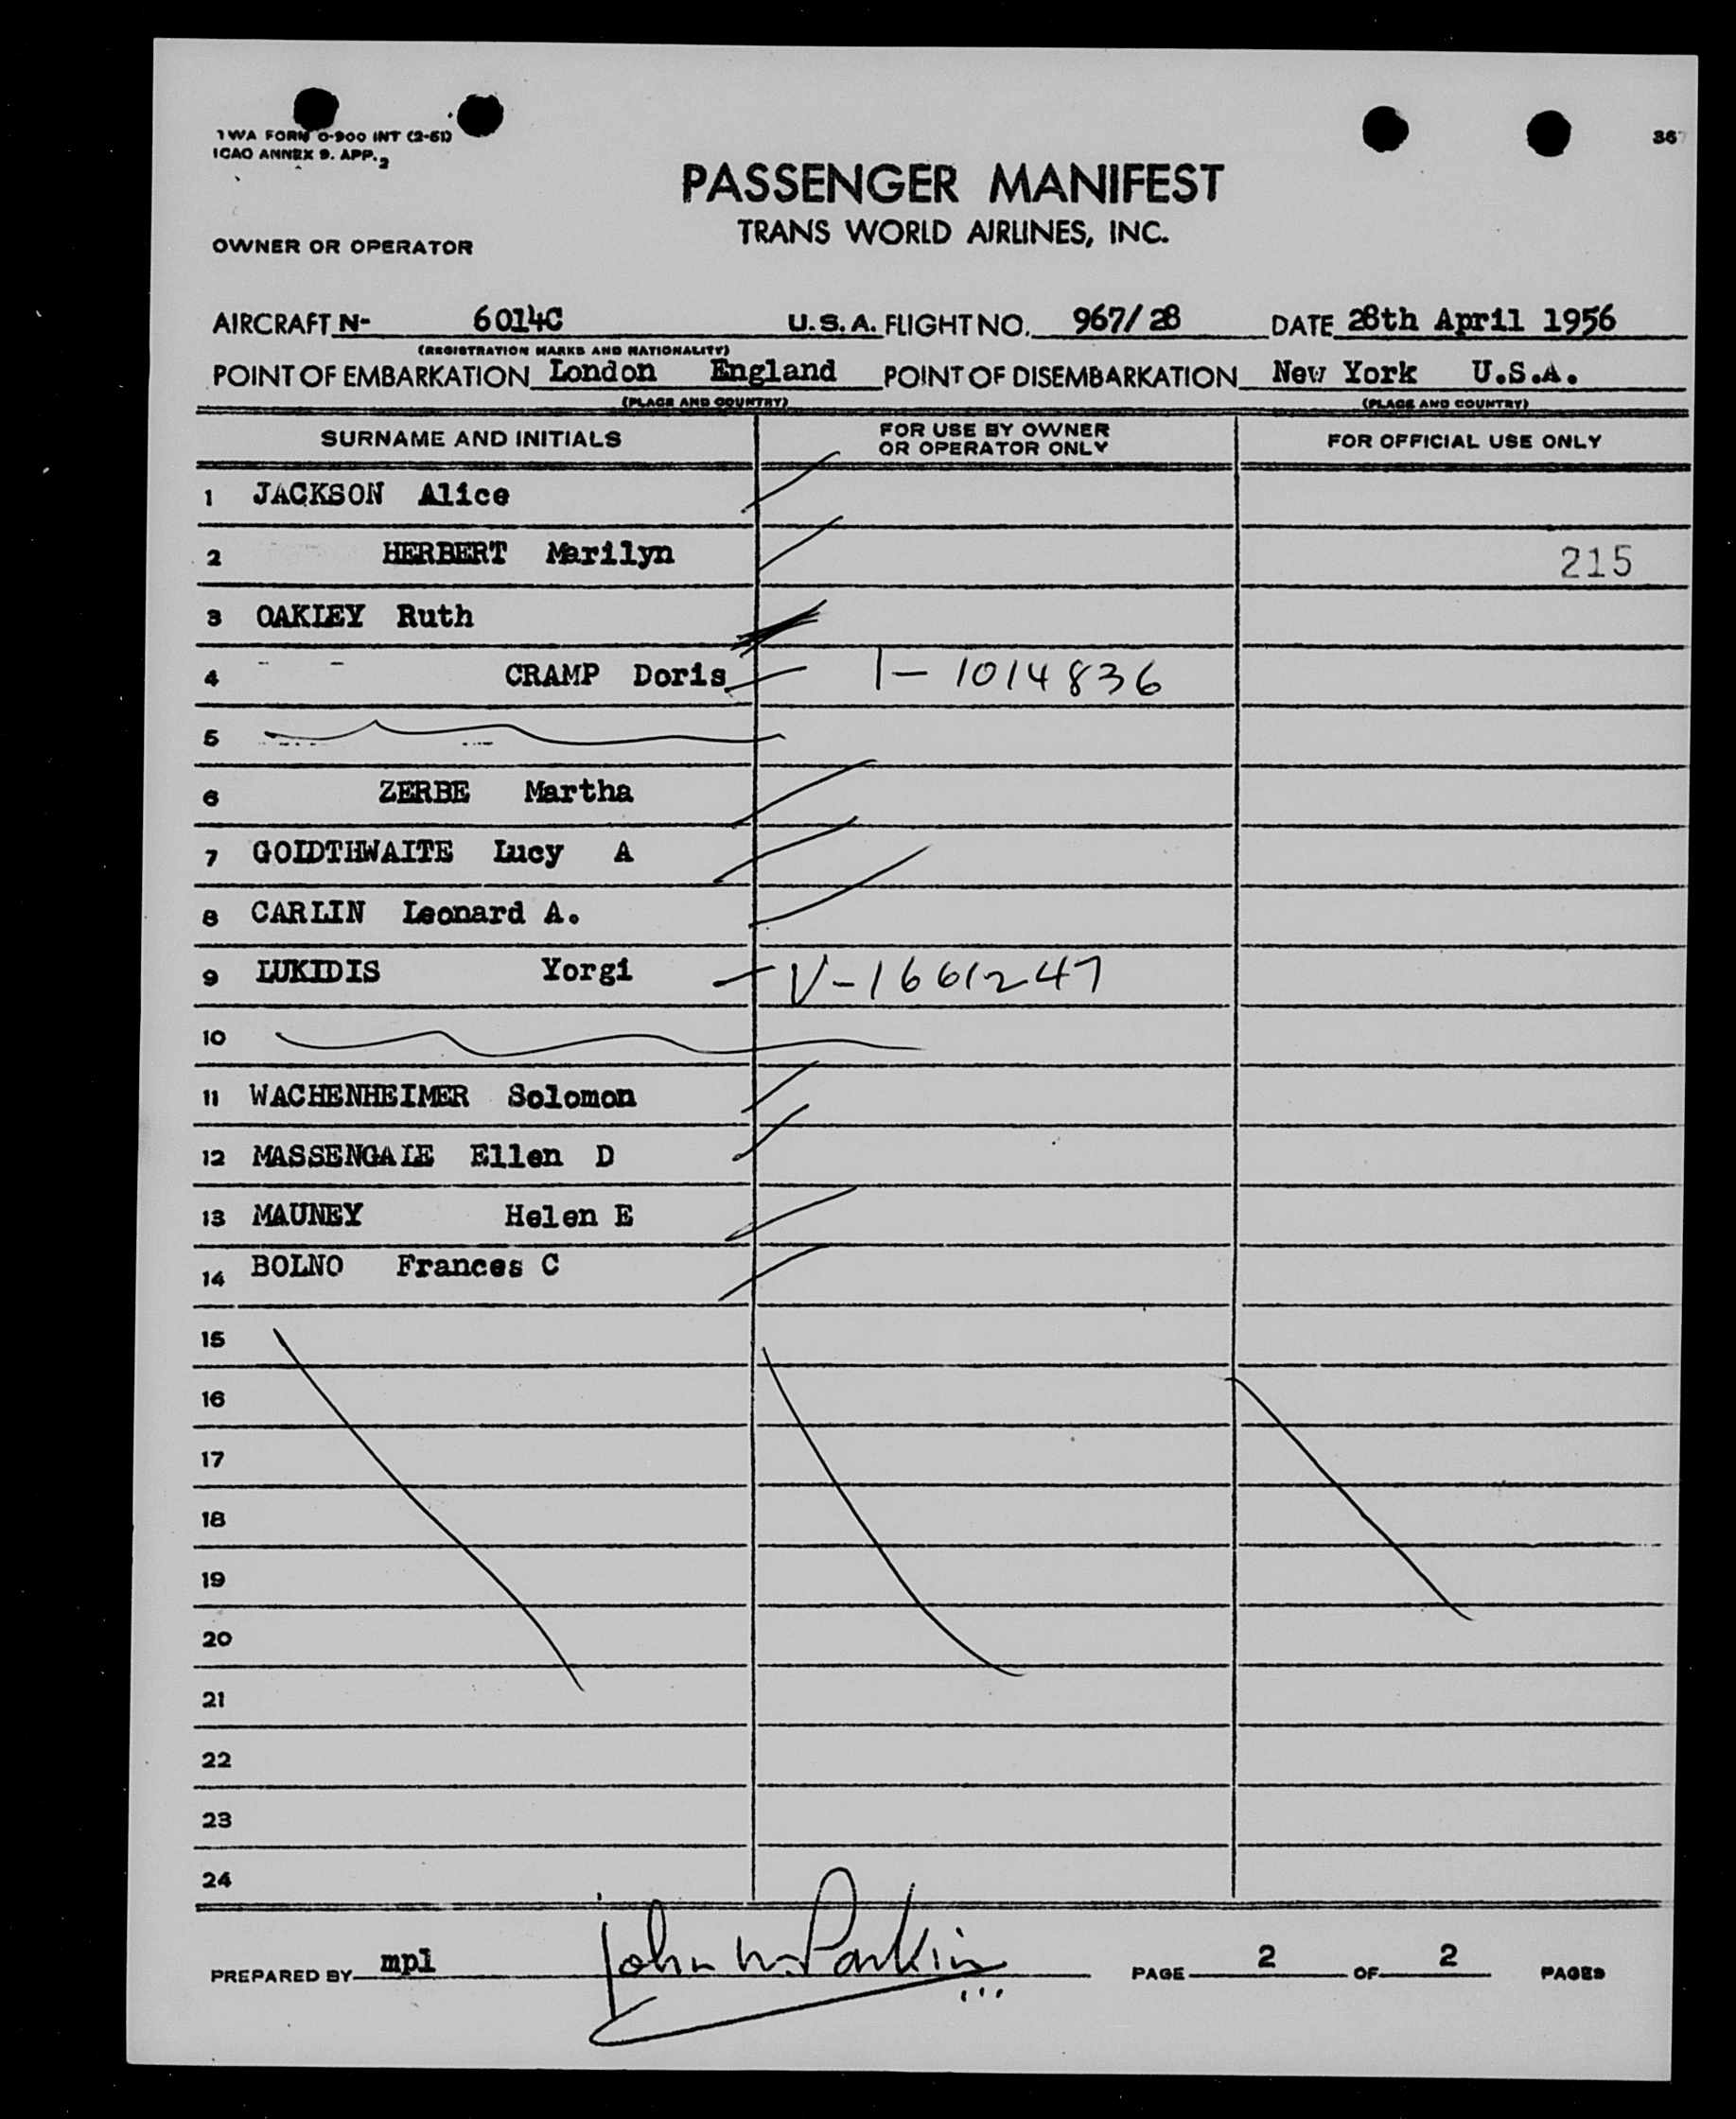 TWA FORM O-900 INT (2-51)
ICAO ANNEX 9. APP. 2
36
PASSENGER MANIFEST
TRANS WORLD AIRLINES, INC.
OWNER OR OPERATOR
AIRCRAFT N- 6014C U.S.A. FLIGHT NO. 967/28 DATE 28th April 1956
(REGISTRATION MARKS AND NATIONALITY)
POINT OF EMBARKATION London England POINT OF DISEMBARKATION New York U.S.A.
(PLACE AND COUNTRY) (PLACE AND COUNTRY)
SURNAME AND INITIALS FOR USE BY OWNER OR OPERATOR ONLY FOR OFFICIAL USE ONLY
1 JACKSON Alice
2 HERBERT Marilyn 215
3 OAKLEY Ruth
4 CRAMP Doris 1-1014836
5
6 ZERBE Martha
7 GOLDTHWAITE Lucy A
8 CARLIN Leonard A.
9 LUKIDIS Yorgi V-1661247
10
11 WACHENHEIMER Solomon
12 MASSENGALE Ellen D
13 MAUNEY Helen E
14 BOLNO Frances C
15
16
17
18
19
20
21
22
23
24
PREPARED BY mpl John W Parkin PAGE 2 OF 2 PAGES